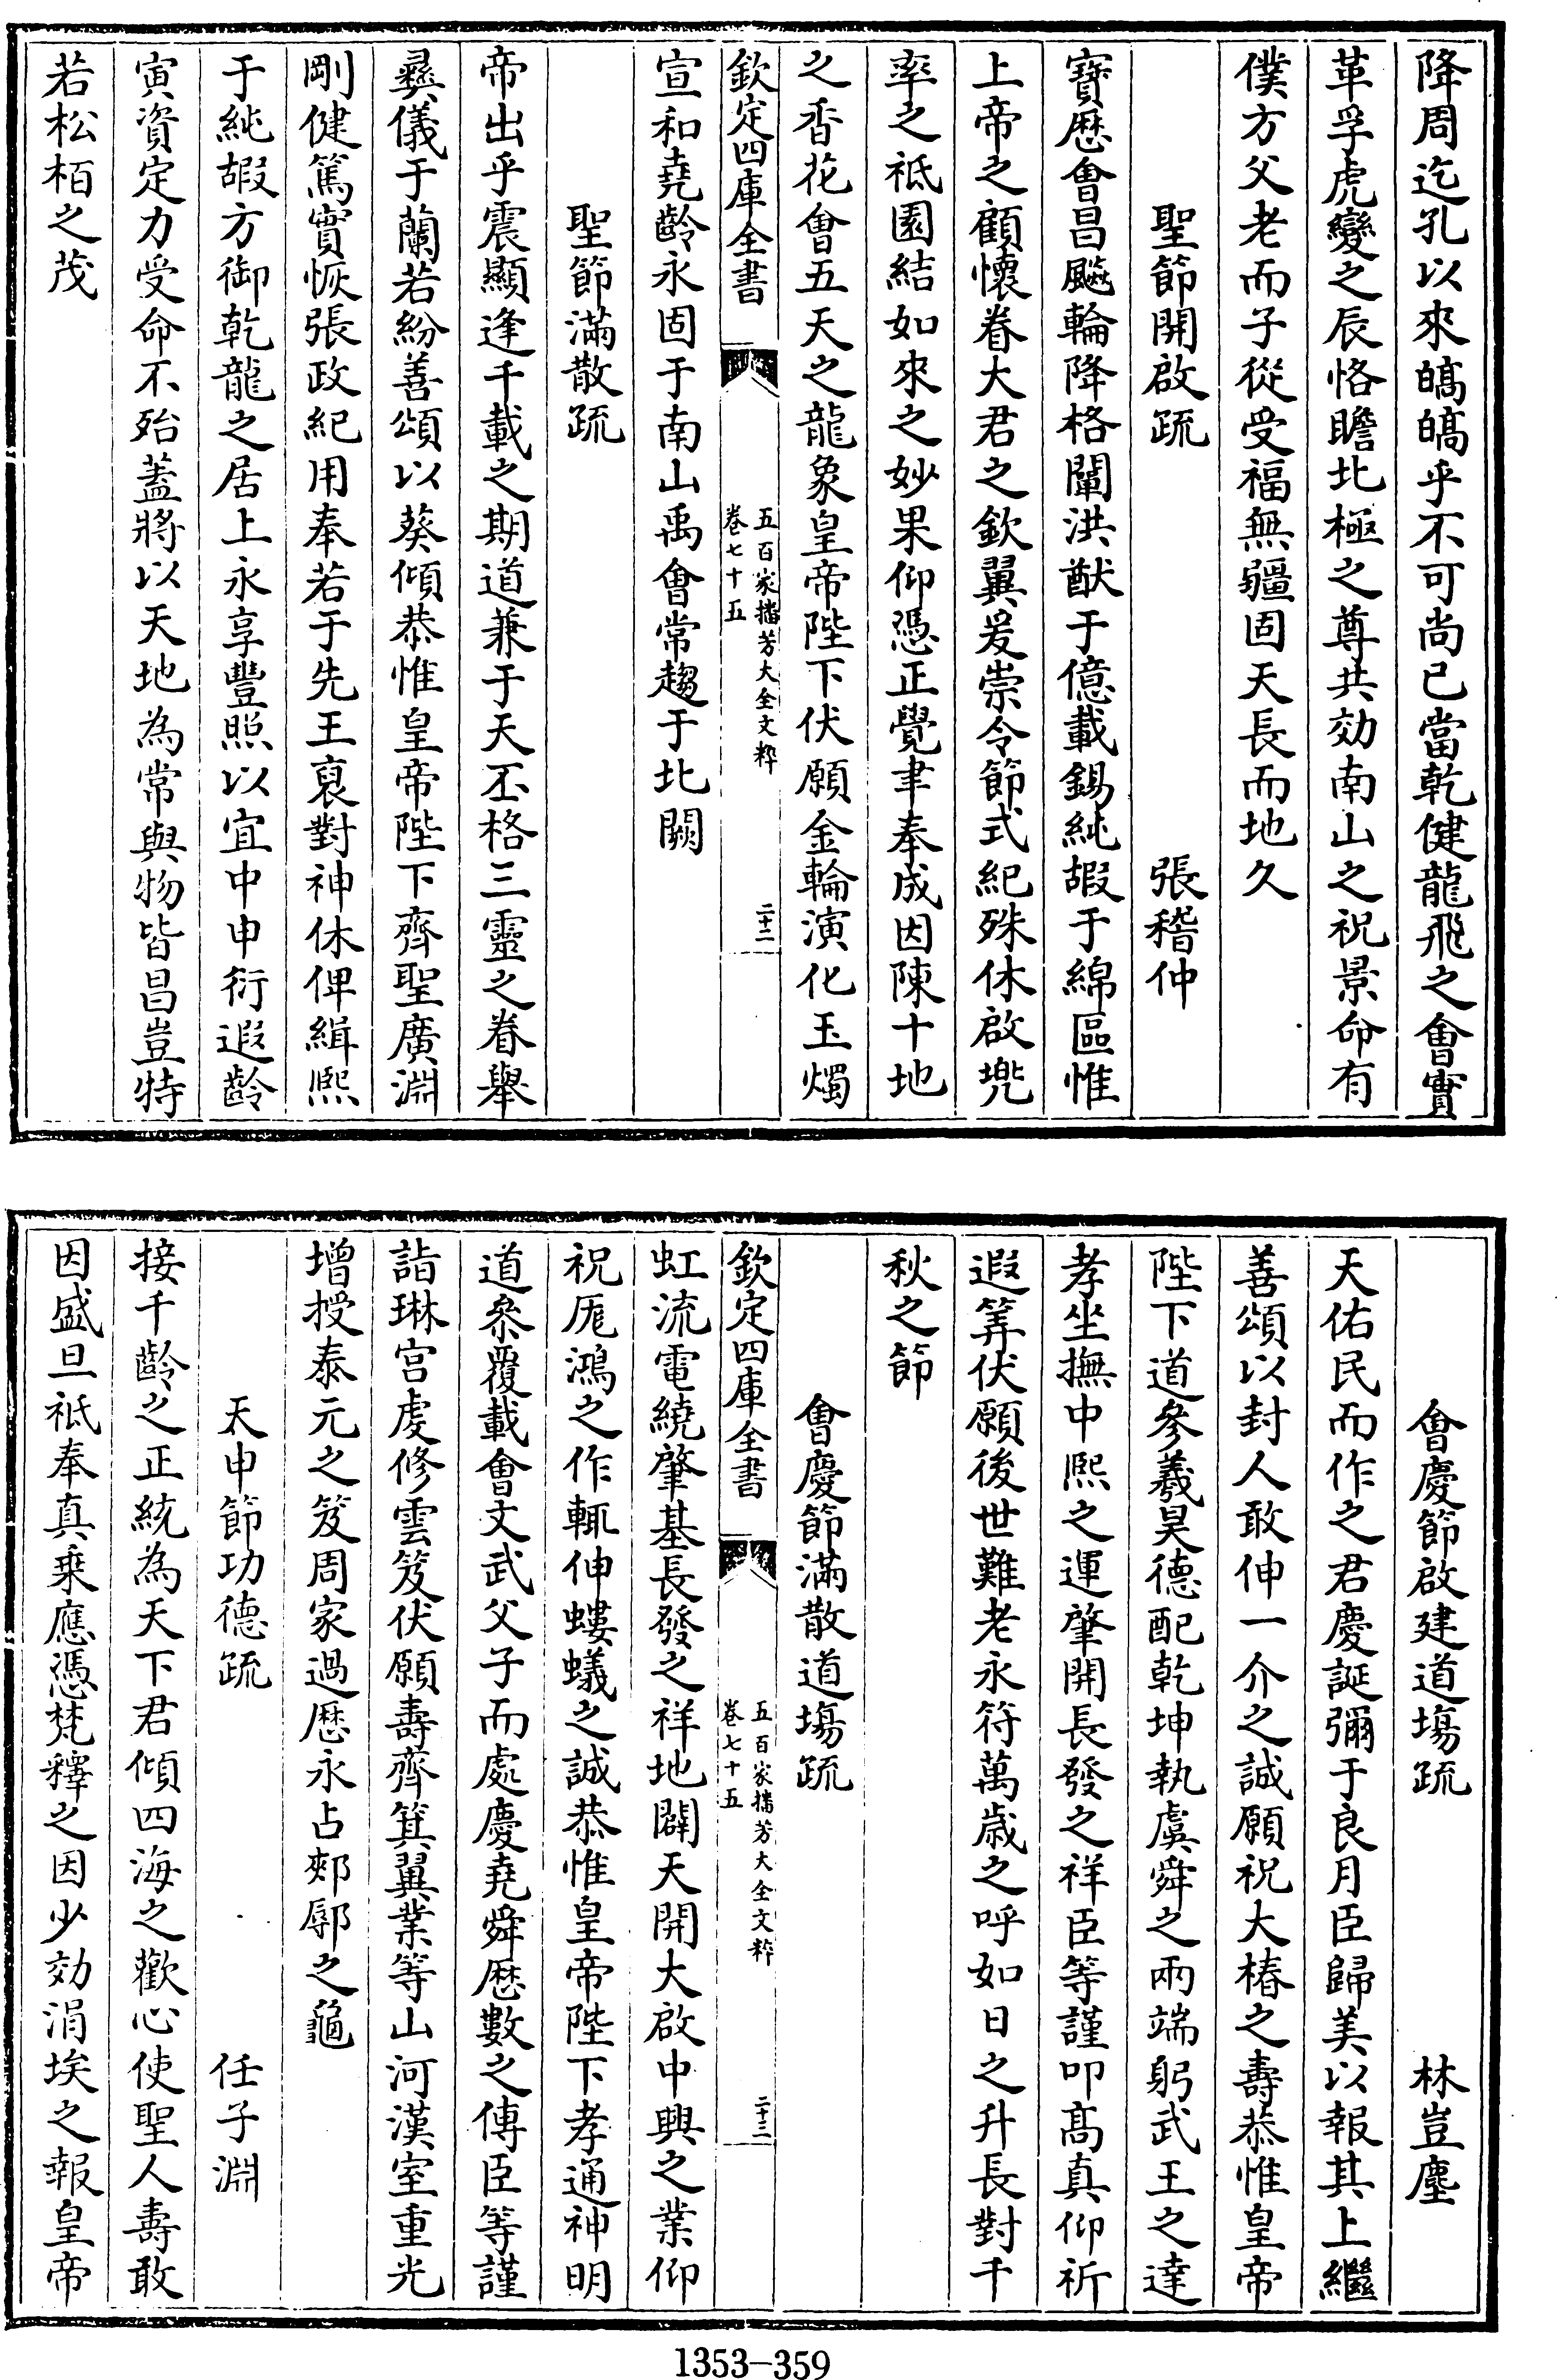 降周迄孔以來皜皜乎不可尚已當乾健龍飛之會實
革孚虎變之辰恪瞻北極之尊共効南山之祝景命有
僕方父老而子從受福無疆固天長而地久
聖節開啟疏 張稽仲
寶厯會昌飈輪降格闡洪猷于億載錫純嘏于綿區惟
上帝之顧懷眷大君之欽翼爰崇令節式紀殊休啟兠
率之祇園結如來之妙果仰憑正覺聿奉成因陳十地
之香花會五天之龍象皇帝陛下伏願金輪演化玉燭
欽定四庫全書 五百家播芳大全文粹 卷七十五 二十二
宣和堯齡永固于南山禹會常趨于北闕
聖節滿散疏
帝出乎震顯逢千載之期道兼于天丕格三靈之眷舉
彞儀于蘭若紛善頌以葵傾恭惟皇帝陛下齊聖廣淵
剛健篤實恢張政紀用奉若于先王裒對神休俾緝熙
于純嘏方御乾龍之居上永享豐照以宜中申衍遐齡
寅資定力受命不殆蓋將以天地為常與物皆昌豈特
若松栢之茂
會慶節啟建道塲疏 林豈塵
天佑民而作之君慶誕彌于良月臣歸美以報其上繼
善頌以封人敢伸一介之誠願祝大椿之壽恭惟皇帝
陛下道參羲昊德配乾坤執虞舜之兩端躬武王之達
孝坐撫中熙之運肇開長發之祥臣等謹叩髙真仰祈
遐筭伏願後世難老永符萬歲之呼如日之升長對千
秋之節
會慶節滿散道塲疏
欽定四庫全書 五百家播芳大全文粹 卷七十五 二十三
虹流電繞肇基長發之祥地闢天開大啟中興之業仰
祝厖鴻之作輒伸螻蟻之誠恭惟皇帝陛下孝通神明
道叅覆載會文武父子而處慶堯舜厯數之傳臣等謹
詣琳宫虔修雲笈伏願壽齊箕翼業等山河漢室重光
增授泰元之筴周家過厯永占郟鄏之龜
天申節功德疏 任子淵
接千齡之正統為天下君傾四海之歡心使聖人壽敢
因盛旦祇奉真乗應憑梵釋之因少効涓埃之報皇帝
1353-359